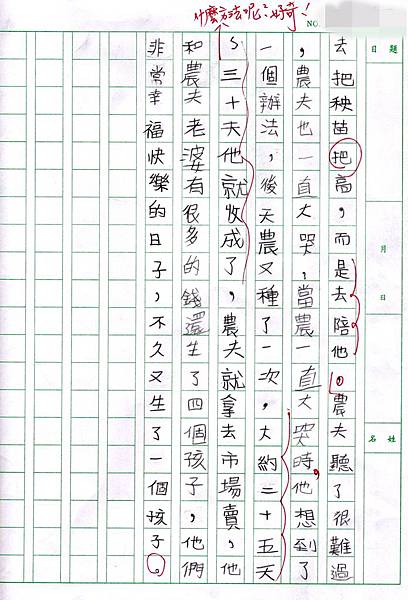 什麼方法呢?好奇!
NO.
題目
月
日
姓名
去把秧苗把高,而是去陪他。農夫聽了很難過
,農夫也一直大哭,當農一直大哭時,他想到了
一個辦法,後天農又種了一次,大約二十五天
~三十夫他就收成了,農夫就拿去市場賣,他
和農夫老婆有很多的錢還生了四個孩子,他們
非常幸福快樂的日子,不久又生了一個孩子。